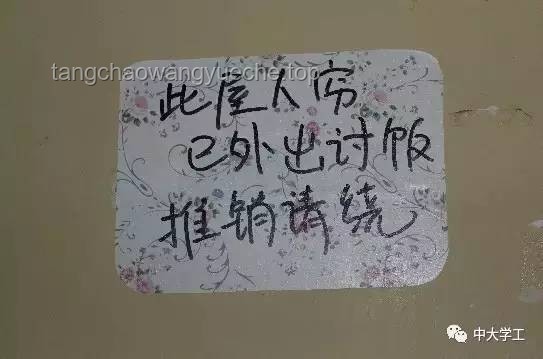 tangchaowangyueche.top
此屋人穷
已外出讨饭
推销请绕
中大学工